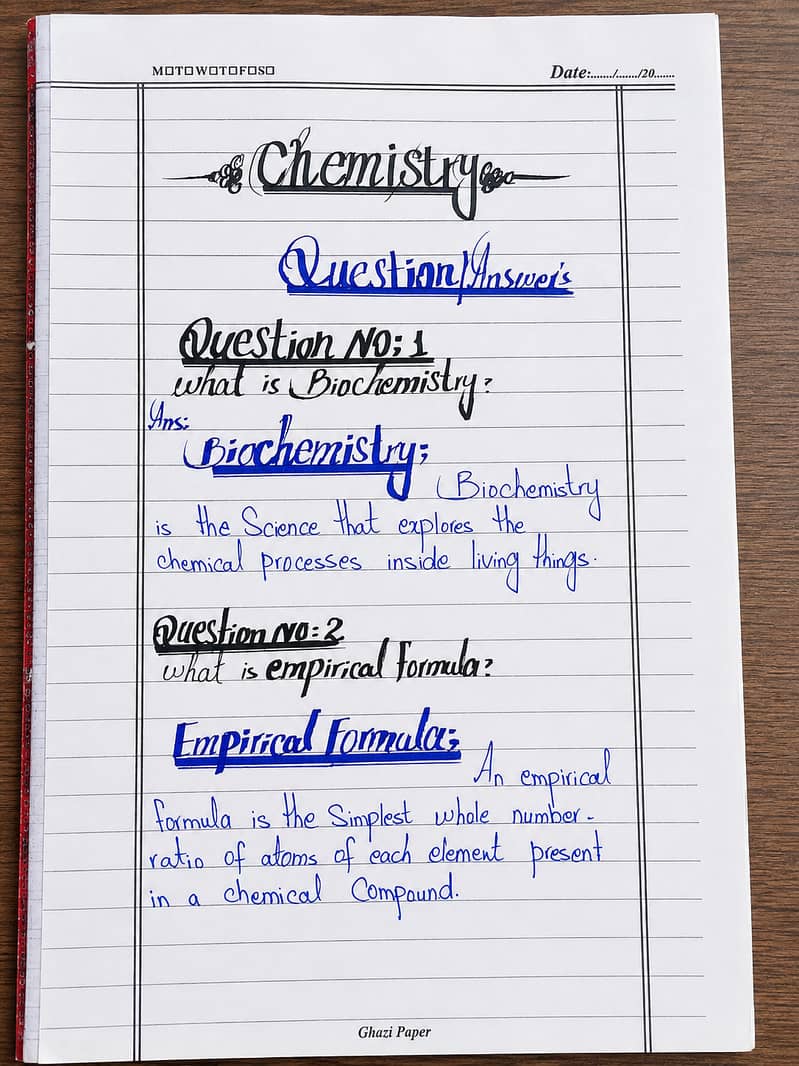 M□T□W□T□F□S□
Date:......./......./20.......
Chemistry
Question/Answer's
Question NO: 1
what is Biochemistry?
Ans:
Biochemistry;
Biochemistry
is the Science that explores the
chemical processes inside living things.
Question NO: 2
what is empirical formula?
Empirical Formula;
An empirical
formula is the Simplest whole number-
ratio of atoms of each element present
in a chemical Compound.
Ghazi Paper